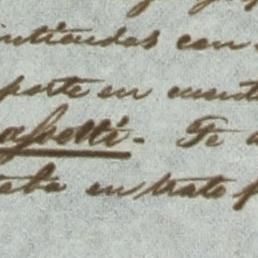 intiendas con
porte en cuent
apotti - Te a
taba en trato p